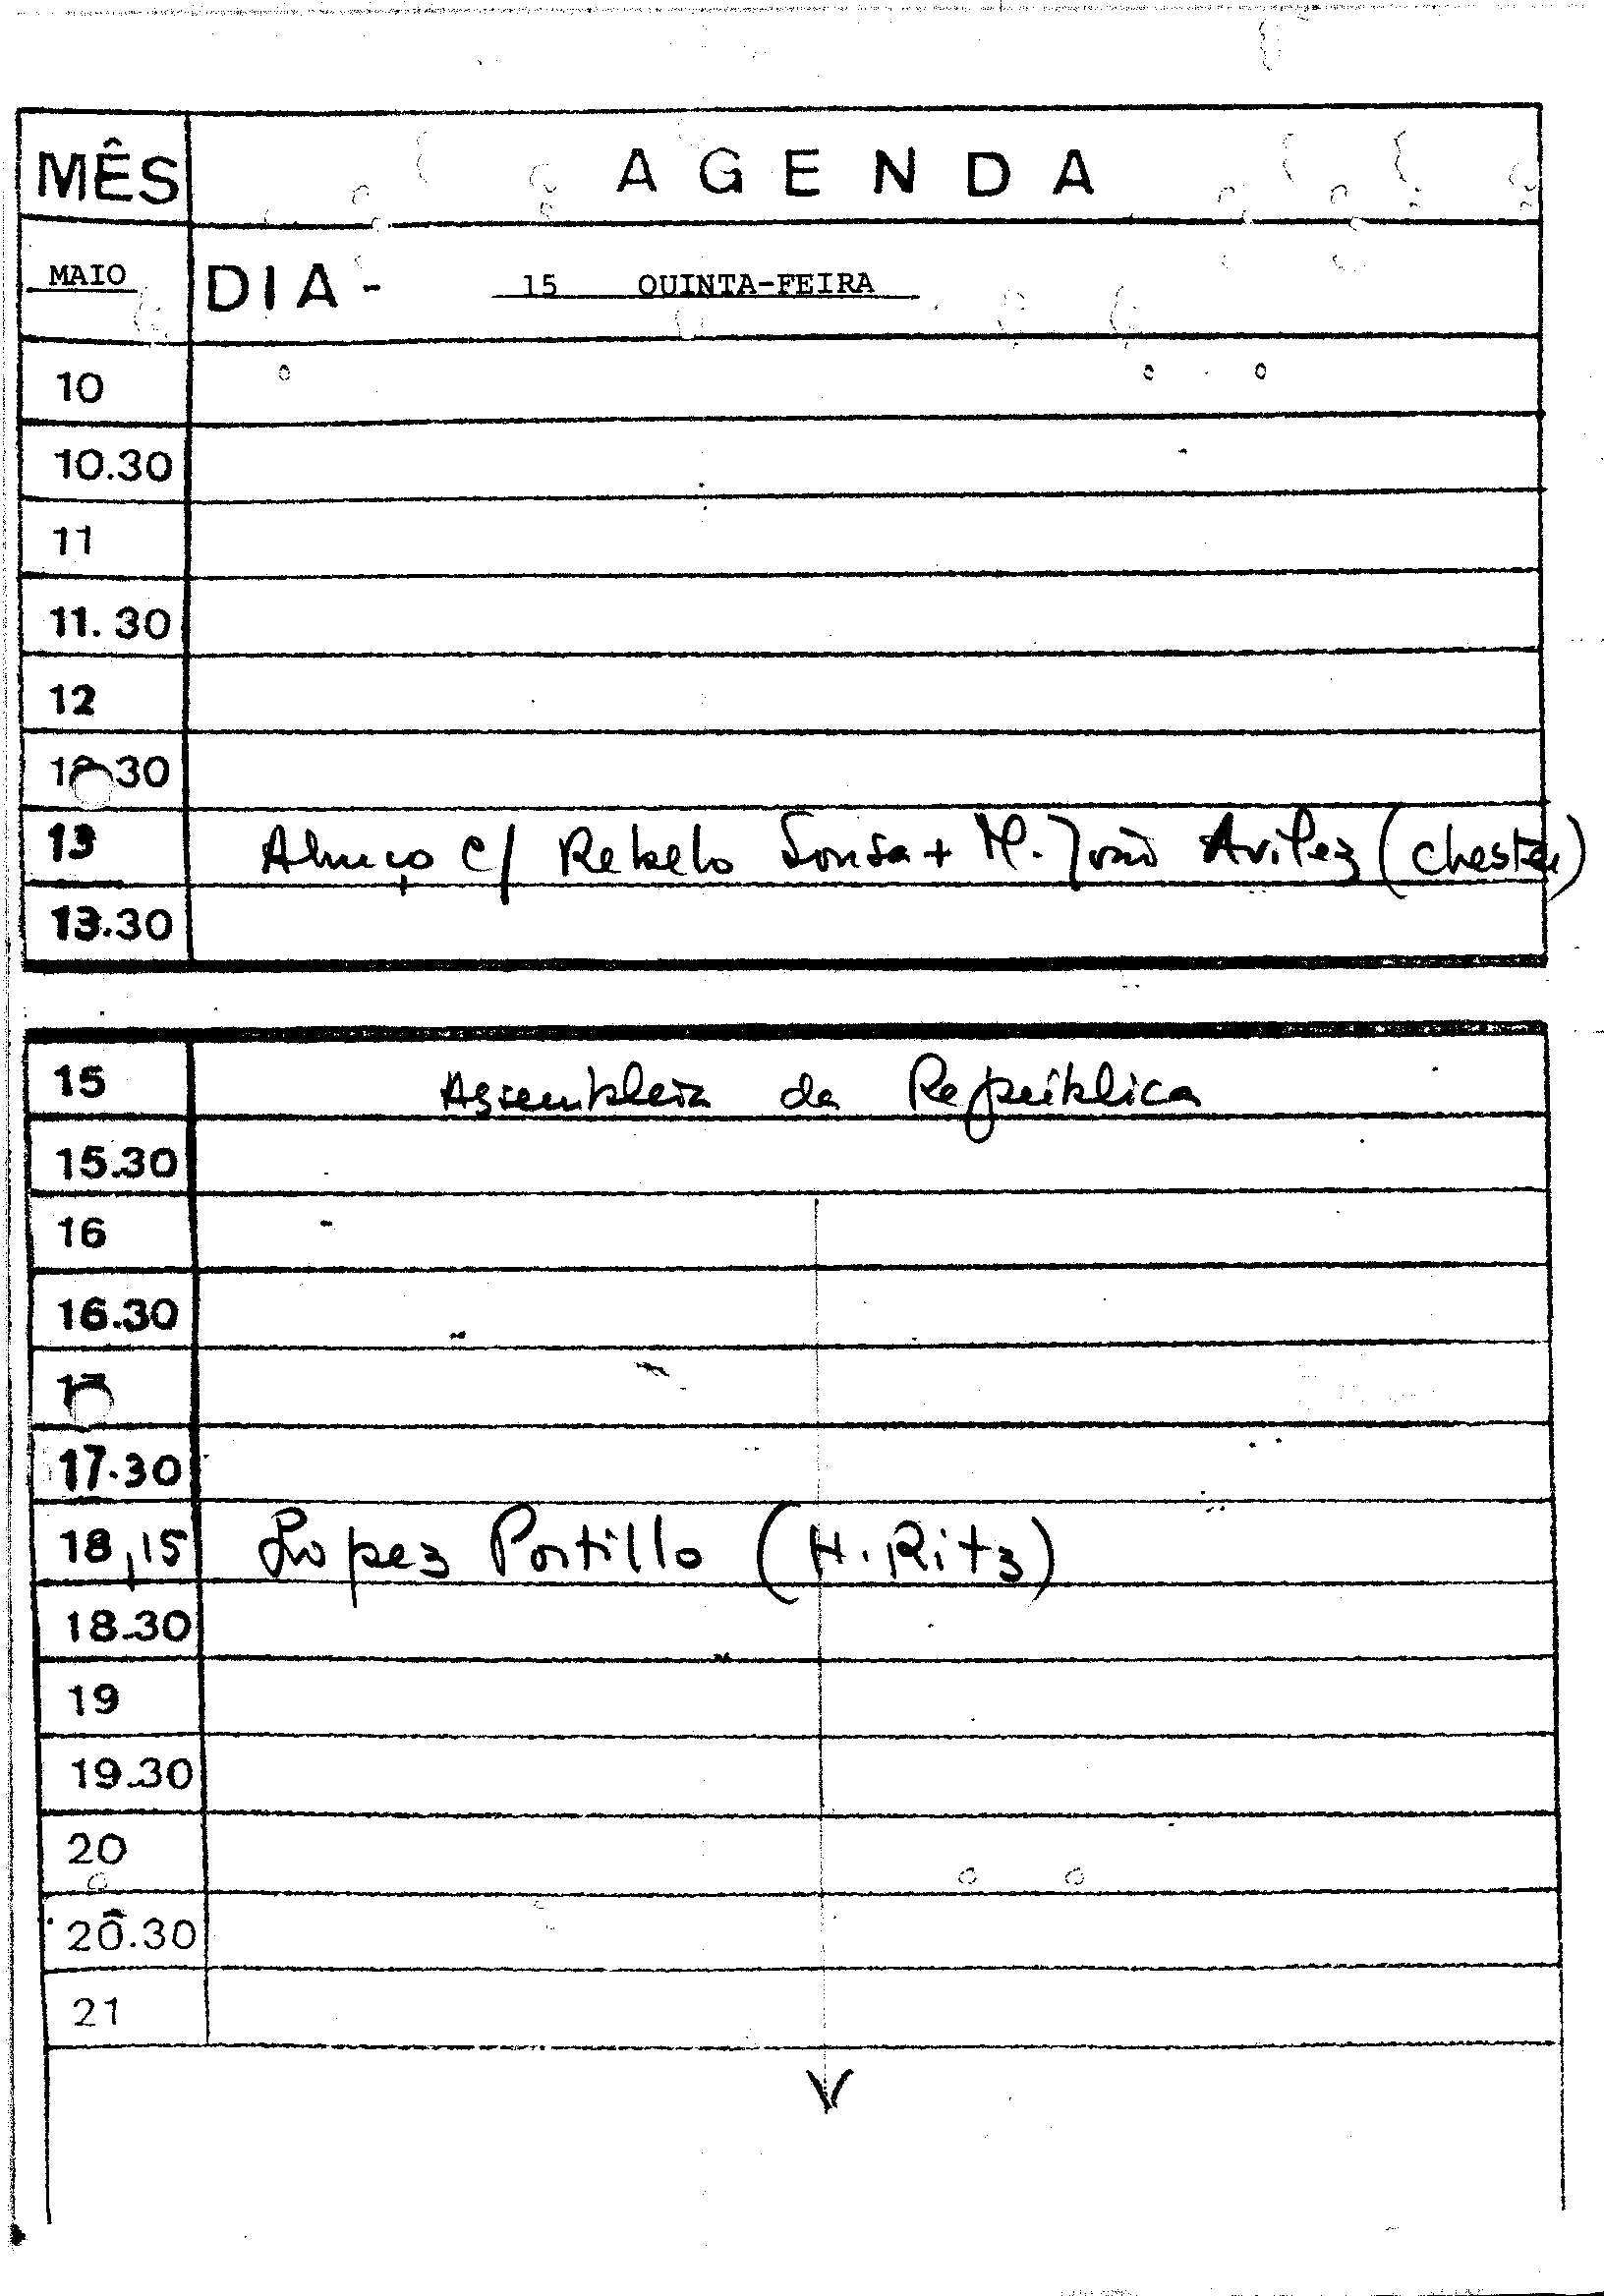 MÊS AGENDA
MAIO DIA - 15 QUINTA-FEIRA
10
10.30
11
11.30
12
12.30
13 Almoço c/ Rebelo Sousa + M. João Avilez (Chester)
13.30
15 Assembleia da República
15.30
16
16.30
17
17.30
18,15 Lopez Portillo (H. Ritz)
18.30
19
19.30
20
20.30
21